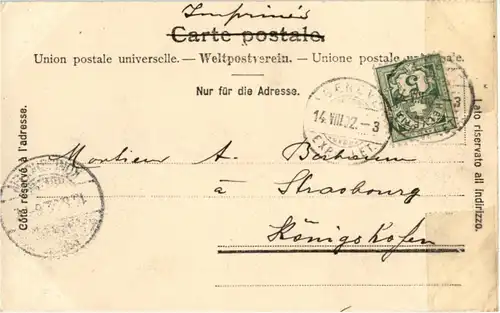 Imprimés
Carte postale.
Union postale universelle. — Weltpostverein. — Unione postale universale.
Nur für die Adresse.
Côté réservé à l'adresse.
Lato riservato all indirizzo.
14.VIII.02.-3
Monsieur A.
à Strasbourg
Königshofen